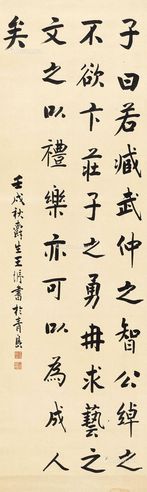 子曰若臧武仲之智公綽之
不欲卞莊子之勇冉求藝之
文之以禮樂亦可以為成人
矣
壬戌秋爵生王垿書於青島